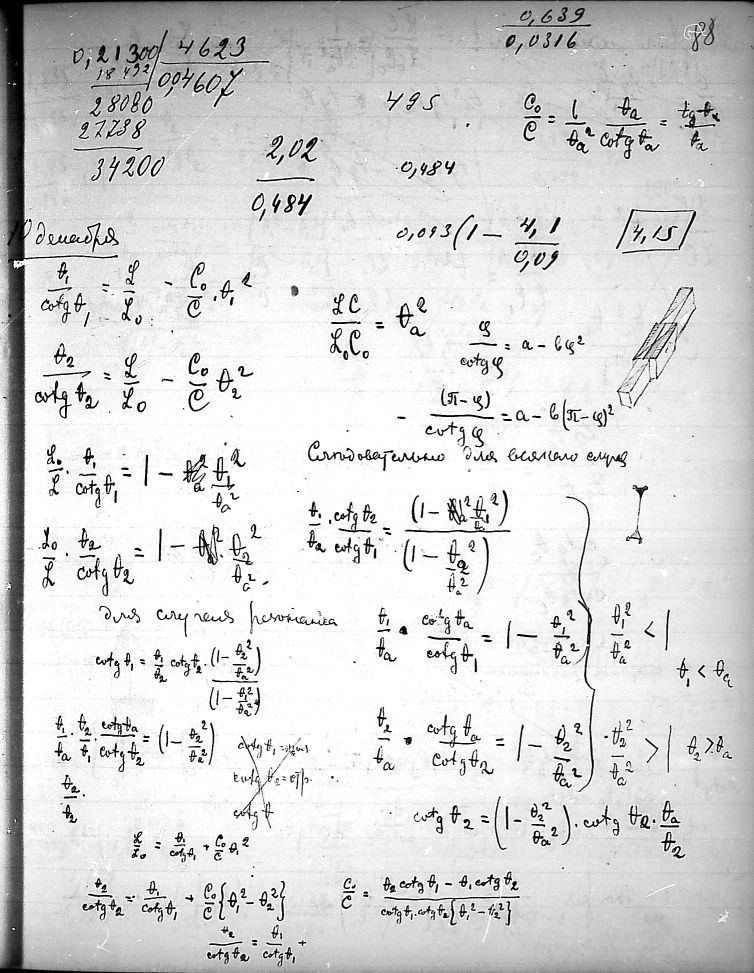 0,639
0,0316
88
0,21300 | 4623
18492 0,04607
28080
27738
34200
495
C₀/C = 1/θₐ² · θₐ/cotg θₐ =
2,02
0,484
0,484
0,093(1 − 4,1/0,09
4,15
10 декабря
θ₁/cotg θ₁ = L/L₀ − C₀/C · θ₁²
LC/L₀C₀ = θₐ²
φ/cotg φ = a − bφ²
θ₂/cotg θ₂ = L/L₀ − C₀/C θ₂²
− (π−φ)/cotg φ = a − b(π−φ)²
L₀/L · θ₁/cotg θ₁ = 1 − θ₁²/θₐ²
Следовательно для всякаго случая
L₀/L · θ₂/cotg θ₂ = 1 − θ₂²/θₐ².
θ₁/θ₂ · cotg θ₂/cotg θ₁ = (1 − θ₁²/θₐ²)/(1 − θ₂²/θₐ²)
для случая резонанса
θ₁/θₐ · cotg θₐ/cotg θ₁ = 1 − θ₁²/θₐ²
θ₁²/θₐ² < 1
θ₁ < θₐ
cotg θ₁ = θ₁/θ₂ cotg θ₂ · (1 − θ₂²/θₐ²)/(1 − θ₁²/θₐ²)
θ₁/θₐ · θ₂/θ₁ · cotg θₐ/cotg θ₂ = (1 − θ₂²/θₐ²)
θ₂/θₐ · cotg θₐ/cotg θ₂ = 1 − θ₂²/θₐ²
θ₂²/θₐ² > 1
θ₂ > θₐ
cotg θ₁ =
cotg θ₂ = отр.
cotg θ
cotg θ₂ = (1 − θ₂²/θₐ²) · cotg θ₂ · θₐ/θ₂
L/L₀ = θ₁/cotg θ₁ + C₀/C θ₁²
θ₂/cotg θ₂ = θ₁/cotg θ₁ + C₀/C {θ₁² − θ₂²}
C₀/C = θ₂ cotg θ₁ − θ₁ cotg θ₂ / cotg θ₁ · cotg θ₂ {θ₁² − θ₂²}
θ₂/cotg θ₂ = θ₁/cotg θ₁ +